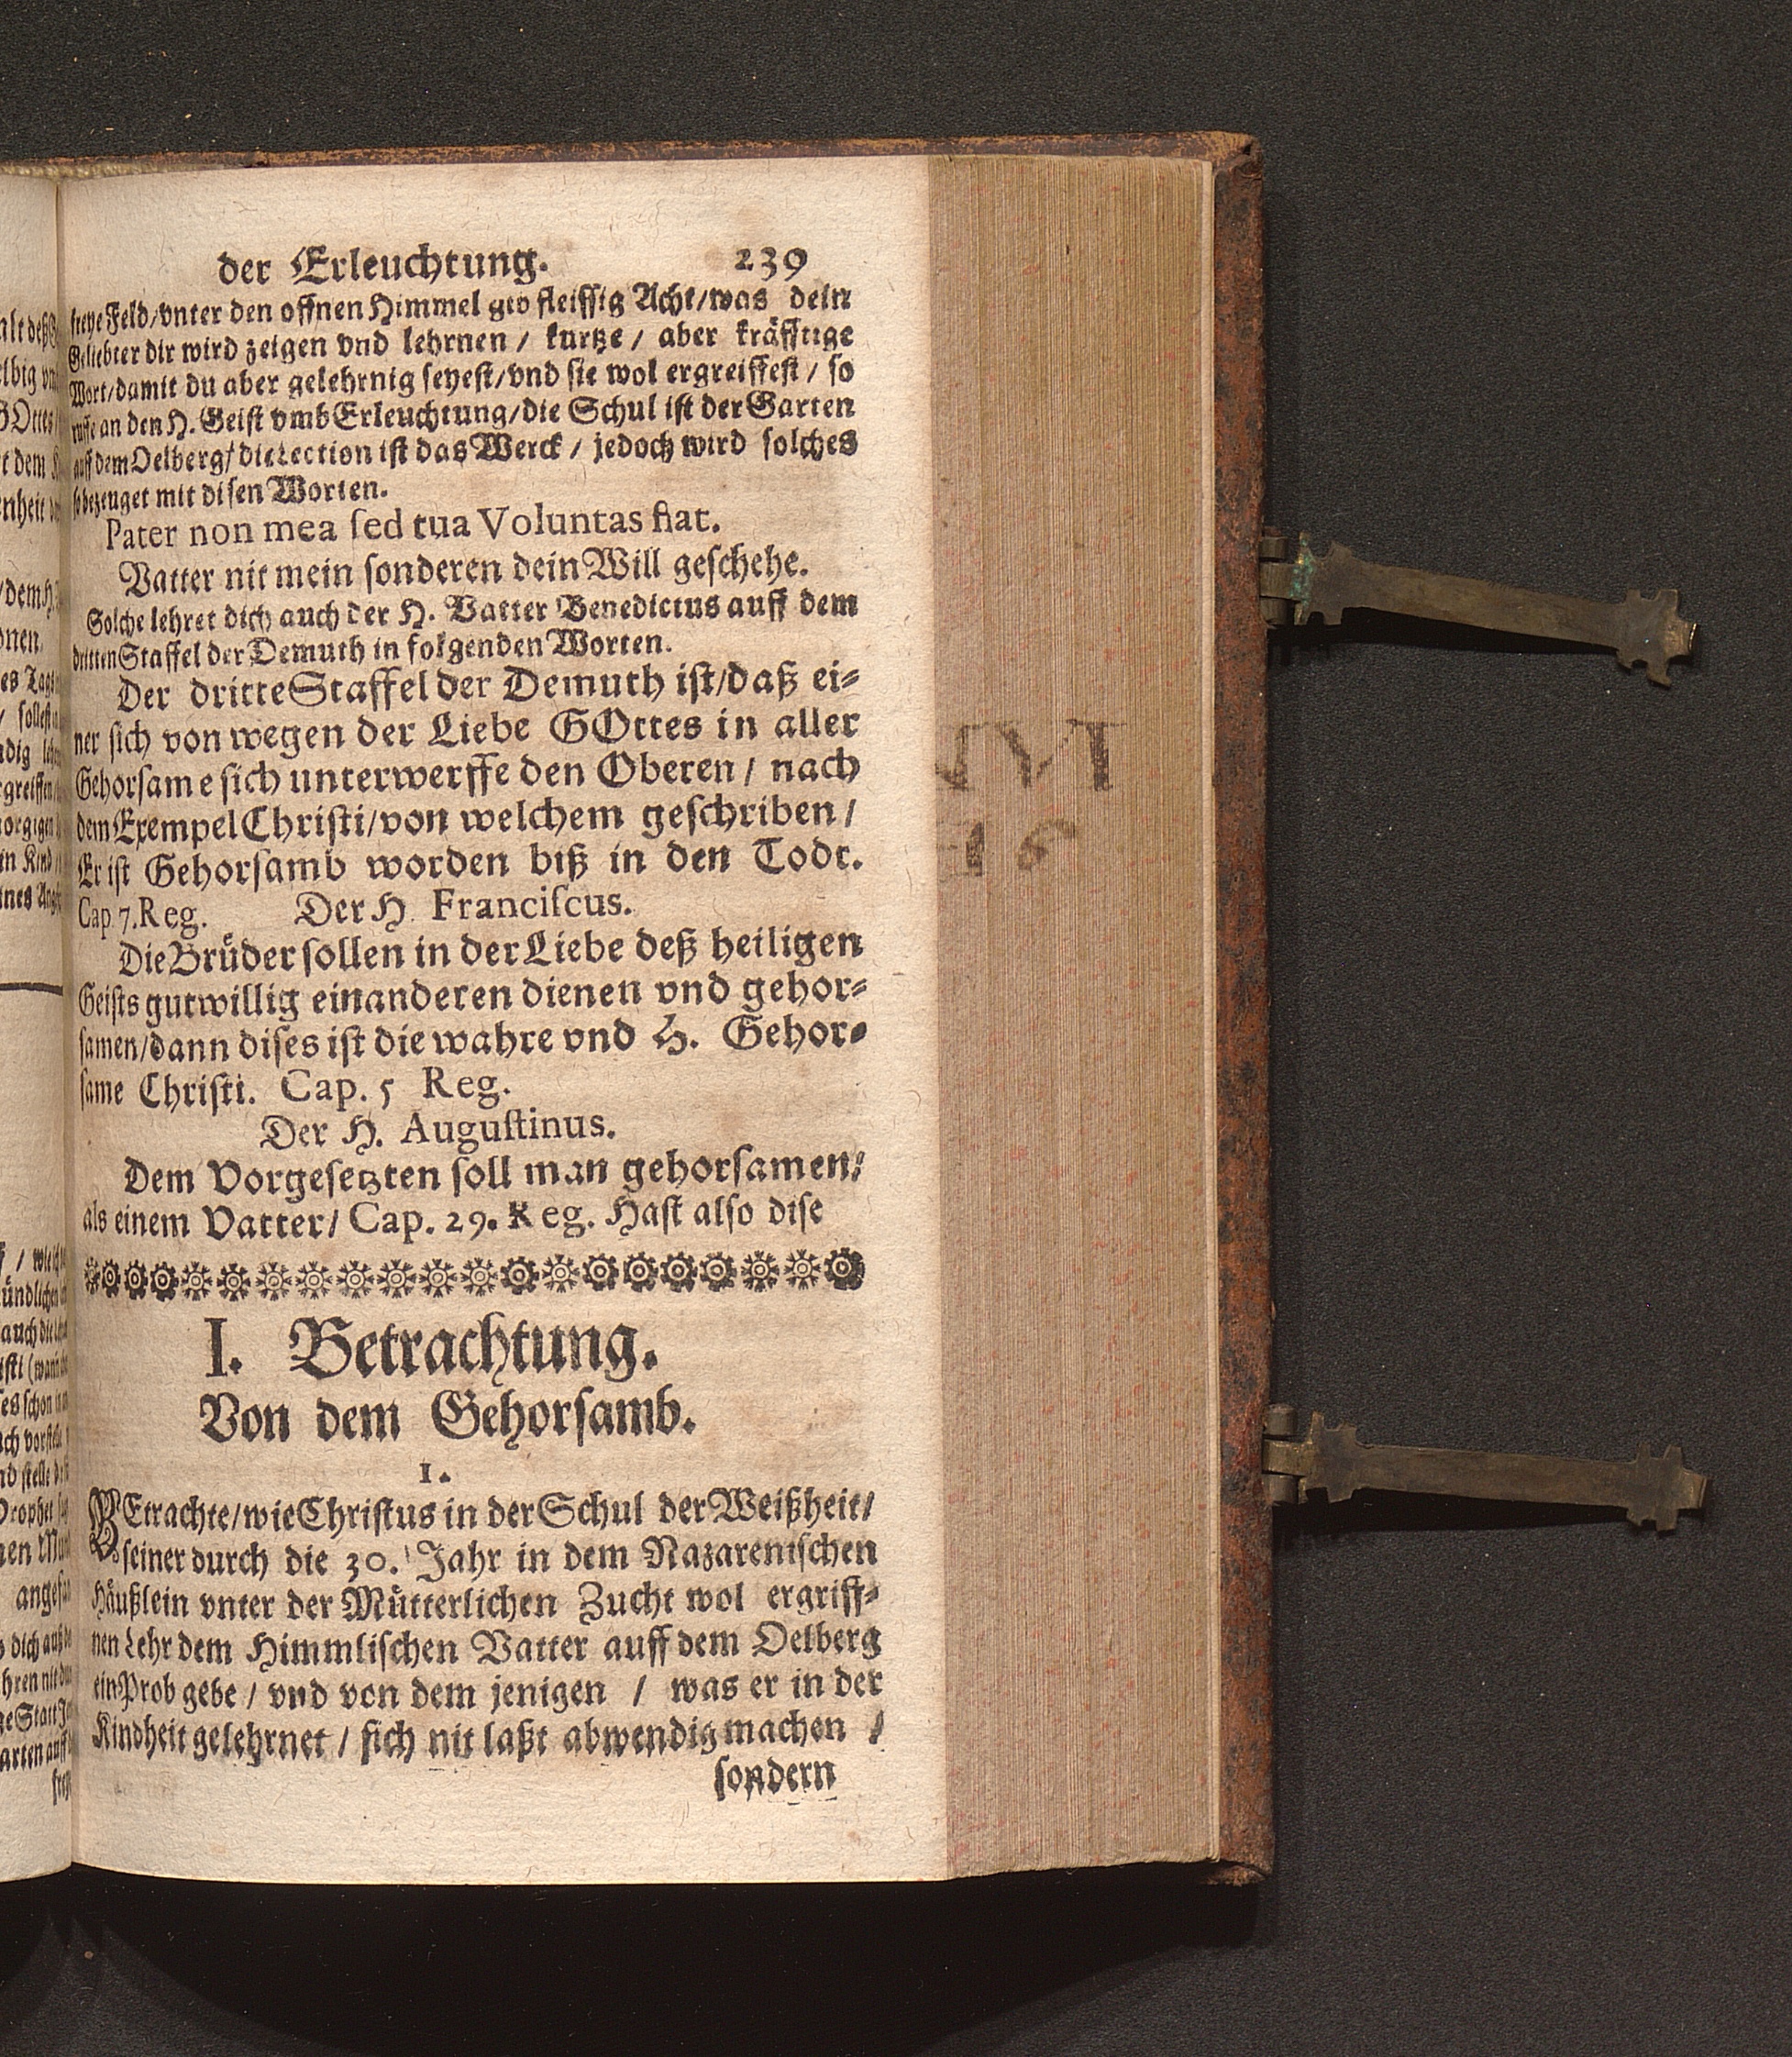 der Erleuchtung. 239
freye Feld/vnter den offnen Himmel gib fleissig Acht/was dein
Geliebter dir wird zeigen vnd lehrnen / kurtze / aber kräfftige
Wort/damit du aber gelehrnig seyest/vnd sie wol ergreiffest / so
ruffe an den H. Geist vmb Erleuchtung/die Schul ist der Garten
auff dem Oelberg/die Lection ist das Werck / jedoch wird solches
so bezeuget mit disen Worten.
Pater non mea ſed tua Voluntas fiat.
Vatter nit mein sonderen dein Will geschehe.
Solche lehret dich auch der H. Vatter Benedictus auff dem
dritten Staffel der Demuth in folgenden Worten.
Der dritte Staffel der Demuth ist/daß ei-
ner sich von wegen der Liebe GOttes in aller
Gehorsame sich unterwerffe den Oberen / nach
dem Exempel Christi/von welchem geschriben /
Er ist Gehorsamb worden biß in den Todt.
Cap 7. Reg. Der H Franciſcus.
Die Brüder sollen in der Liebe deß heiligen
Geists gutwillig einanderen dienen vnd gehor-
samen/dann dises ist die wahre vnd H. Gehor-
same Christi. Cap. 5 Reg.
Der H. Auguſtinus.
Dem Vorgesetzten soll man gehorsamen/
als einem Vatter/ Cap. 29. Reg. Hast also dise
I. Betrachtung.
Von dem Gehorsamb.
1.
BEtrachte/wie Christus in der Schul der Weißheit/
seiner durch die 30. Jahr in dem Nazarenischen
Häußlein vnter der Mütterlichen Zucht wol ergriff-
nen Lehr dem Himmlischen Vatter auff dem Oelberg
ein Prob gebe / vnd von dem jenigen / was er in der
Kindheit gelehrnet / sich nit laßt abwendig machen /
sondern